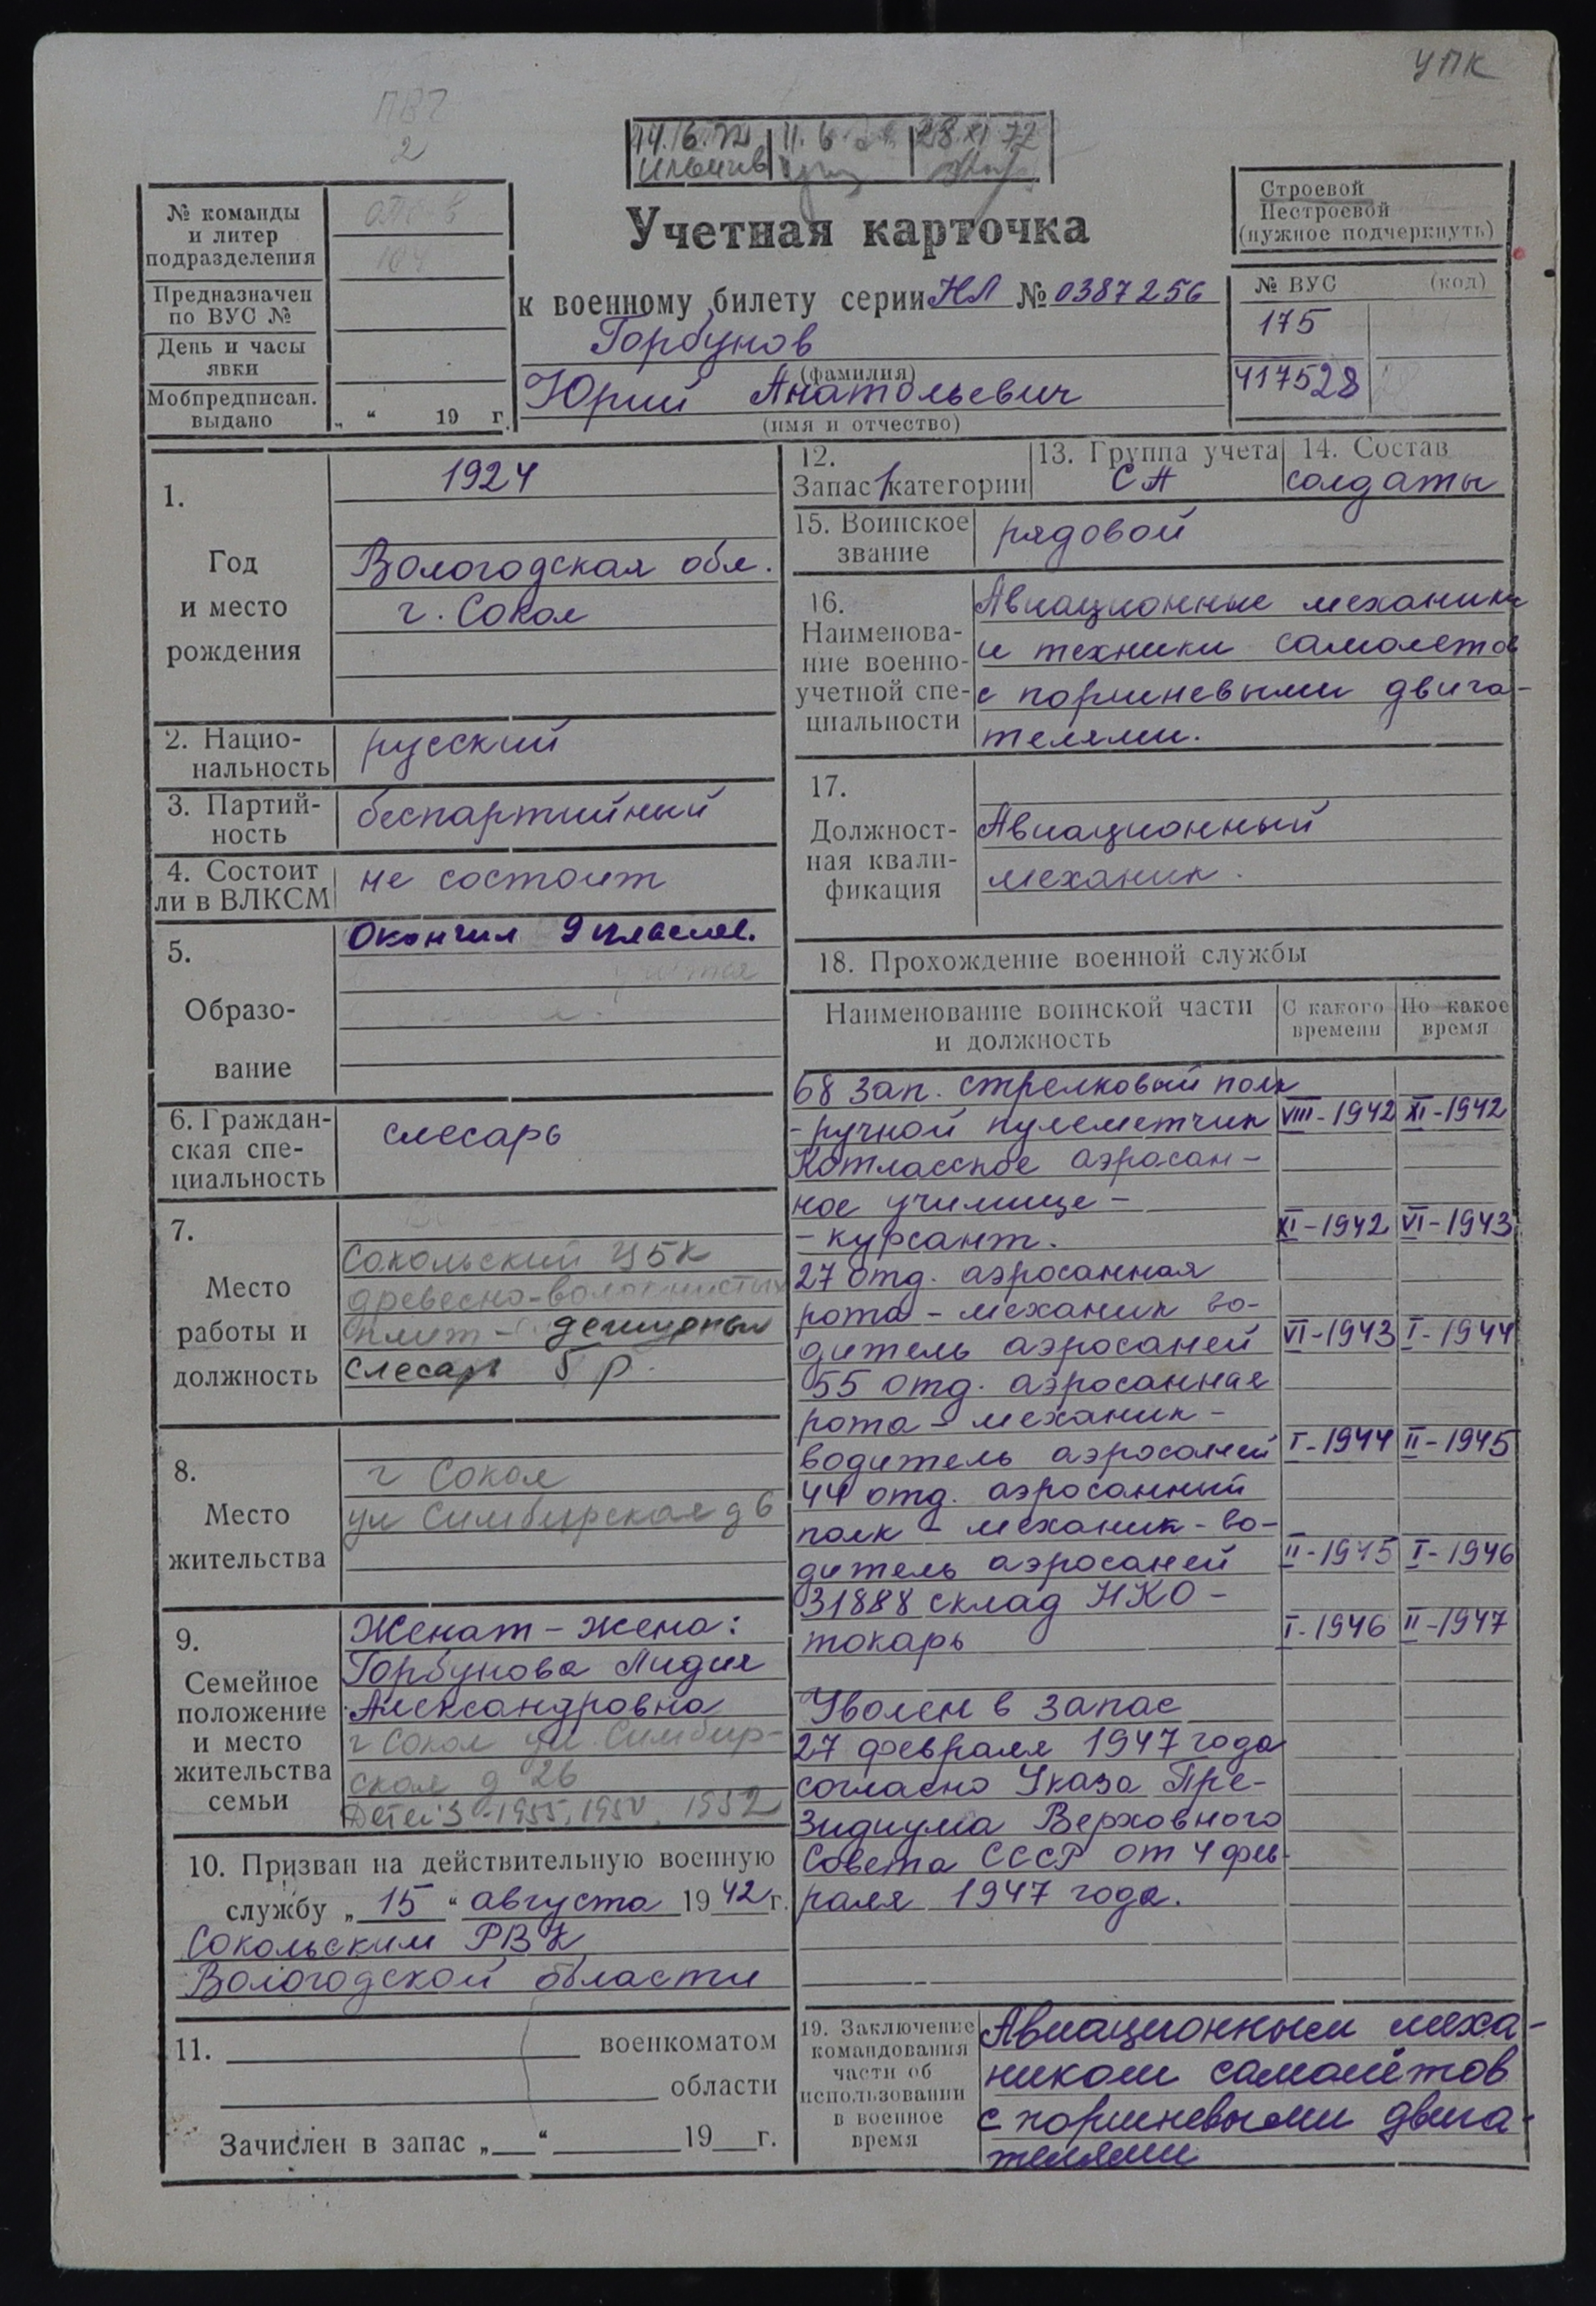 УПК
ПВЧ
2
14.6.72 11.6. 28.XI 72
№ команды
и литер
подразделения
Предназначен
по ВУС №
День и часы
явки
Мобпредписан.
выдано
„ “ 19 г.
Учетная карточка
к военному билету серии НЛ № 0387256
Горбунов
(фамилия)
Юрий Анатольевич
(имя и отчество)
Строевой
Нестроевой
(нужное подчеркнуть)
№ ВУС (код)
175
417528
1.
Год
и место
рождения
1924
Вологодская обл.
г. Сокол
2. Нацио-
нальность
русский
3. Партий-
ность
беспартийный
4. Состоит
ли в ВЛКСМ
не состоит
5.
Образо-
вание
Окончил 9 классов.
6. Граждан-
ская спе-
циальность
слесарь
7.
Место
работы и
должность
Сокольский ЦБК
древесно-волокнистых
плит - дежурный
слесарь 5 р.
8.
Место
жительства
г Сокол
ул Симбирская д 6
9.
Семейное
положение
и место
жительства
семьи
Женат - жена:
Горбунова Лидия
Александровна
г Сокол ул. Симбир-
ская д 26
Детей 3 - 1955, 1950, 1952
10. Призван на действительную военную
службу „ 15 “ августа 1942 г.
Сокольским РВК
Вологодской области
11. военкоматом
области
Зачислен в запас „ “ 19 г.
12.
Запас 1 категории
13. Группа учета
СА
14. Состав
солдаты
15. Воинское
звание
рядовой
16.
Наименова-
ние военно-
учетной спе-
циальности
Авиационные механики
и техники самолетов
с поршневыми двига-
телями.
17.
Должност-
ная квали-
фикация
Авиационный
механик.
18. Прохождение военной службы
Наименование воинской части
и должность
С какого
времени
По какое
время
68 зап. стрелковый полк
- ручной пулеметчик VIII-1942 XI-1942
Котласское аэросан-
ное училище -
- курсант. XI-1942 VI-1943
27 отд. аэросанная
рота - механик во-
дитель аэросаней VI-1943 I-1944
55 отд. аэросанная
рота - механик -
водитель аэросаней I-1944 II-1945
44 отд. аэросанный
полк - механик - во-
дитель аэросаней II-1945 I-1946
31888 склад НКО -
токарь I-1946 II-1947
Уволен в запас
27 февраля 1947 года
согласно Указа Пре-
зидиума Верховного
Совета СССР от 4 фев-
раля 1947 года.
19. Заключение
командования
части об
использовании
в военное
время
Авиационным меха-
ником самолётов
с поршневыми двига-
телями